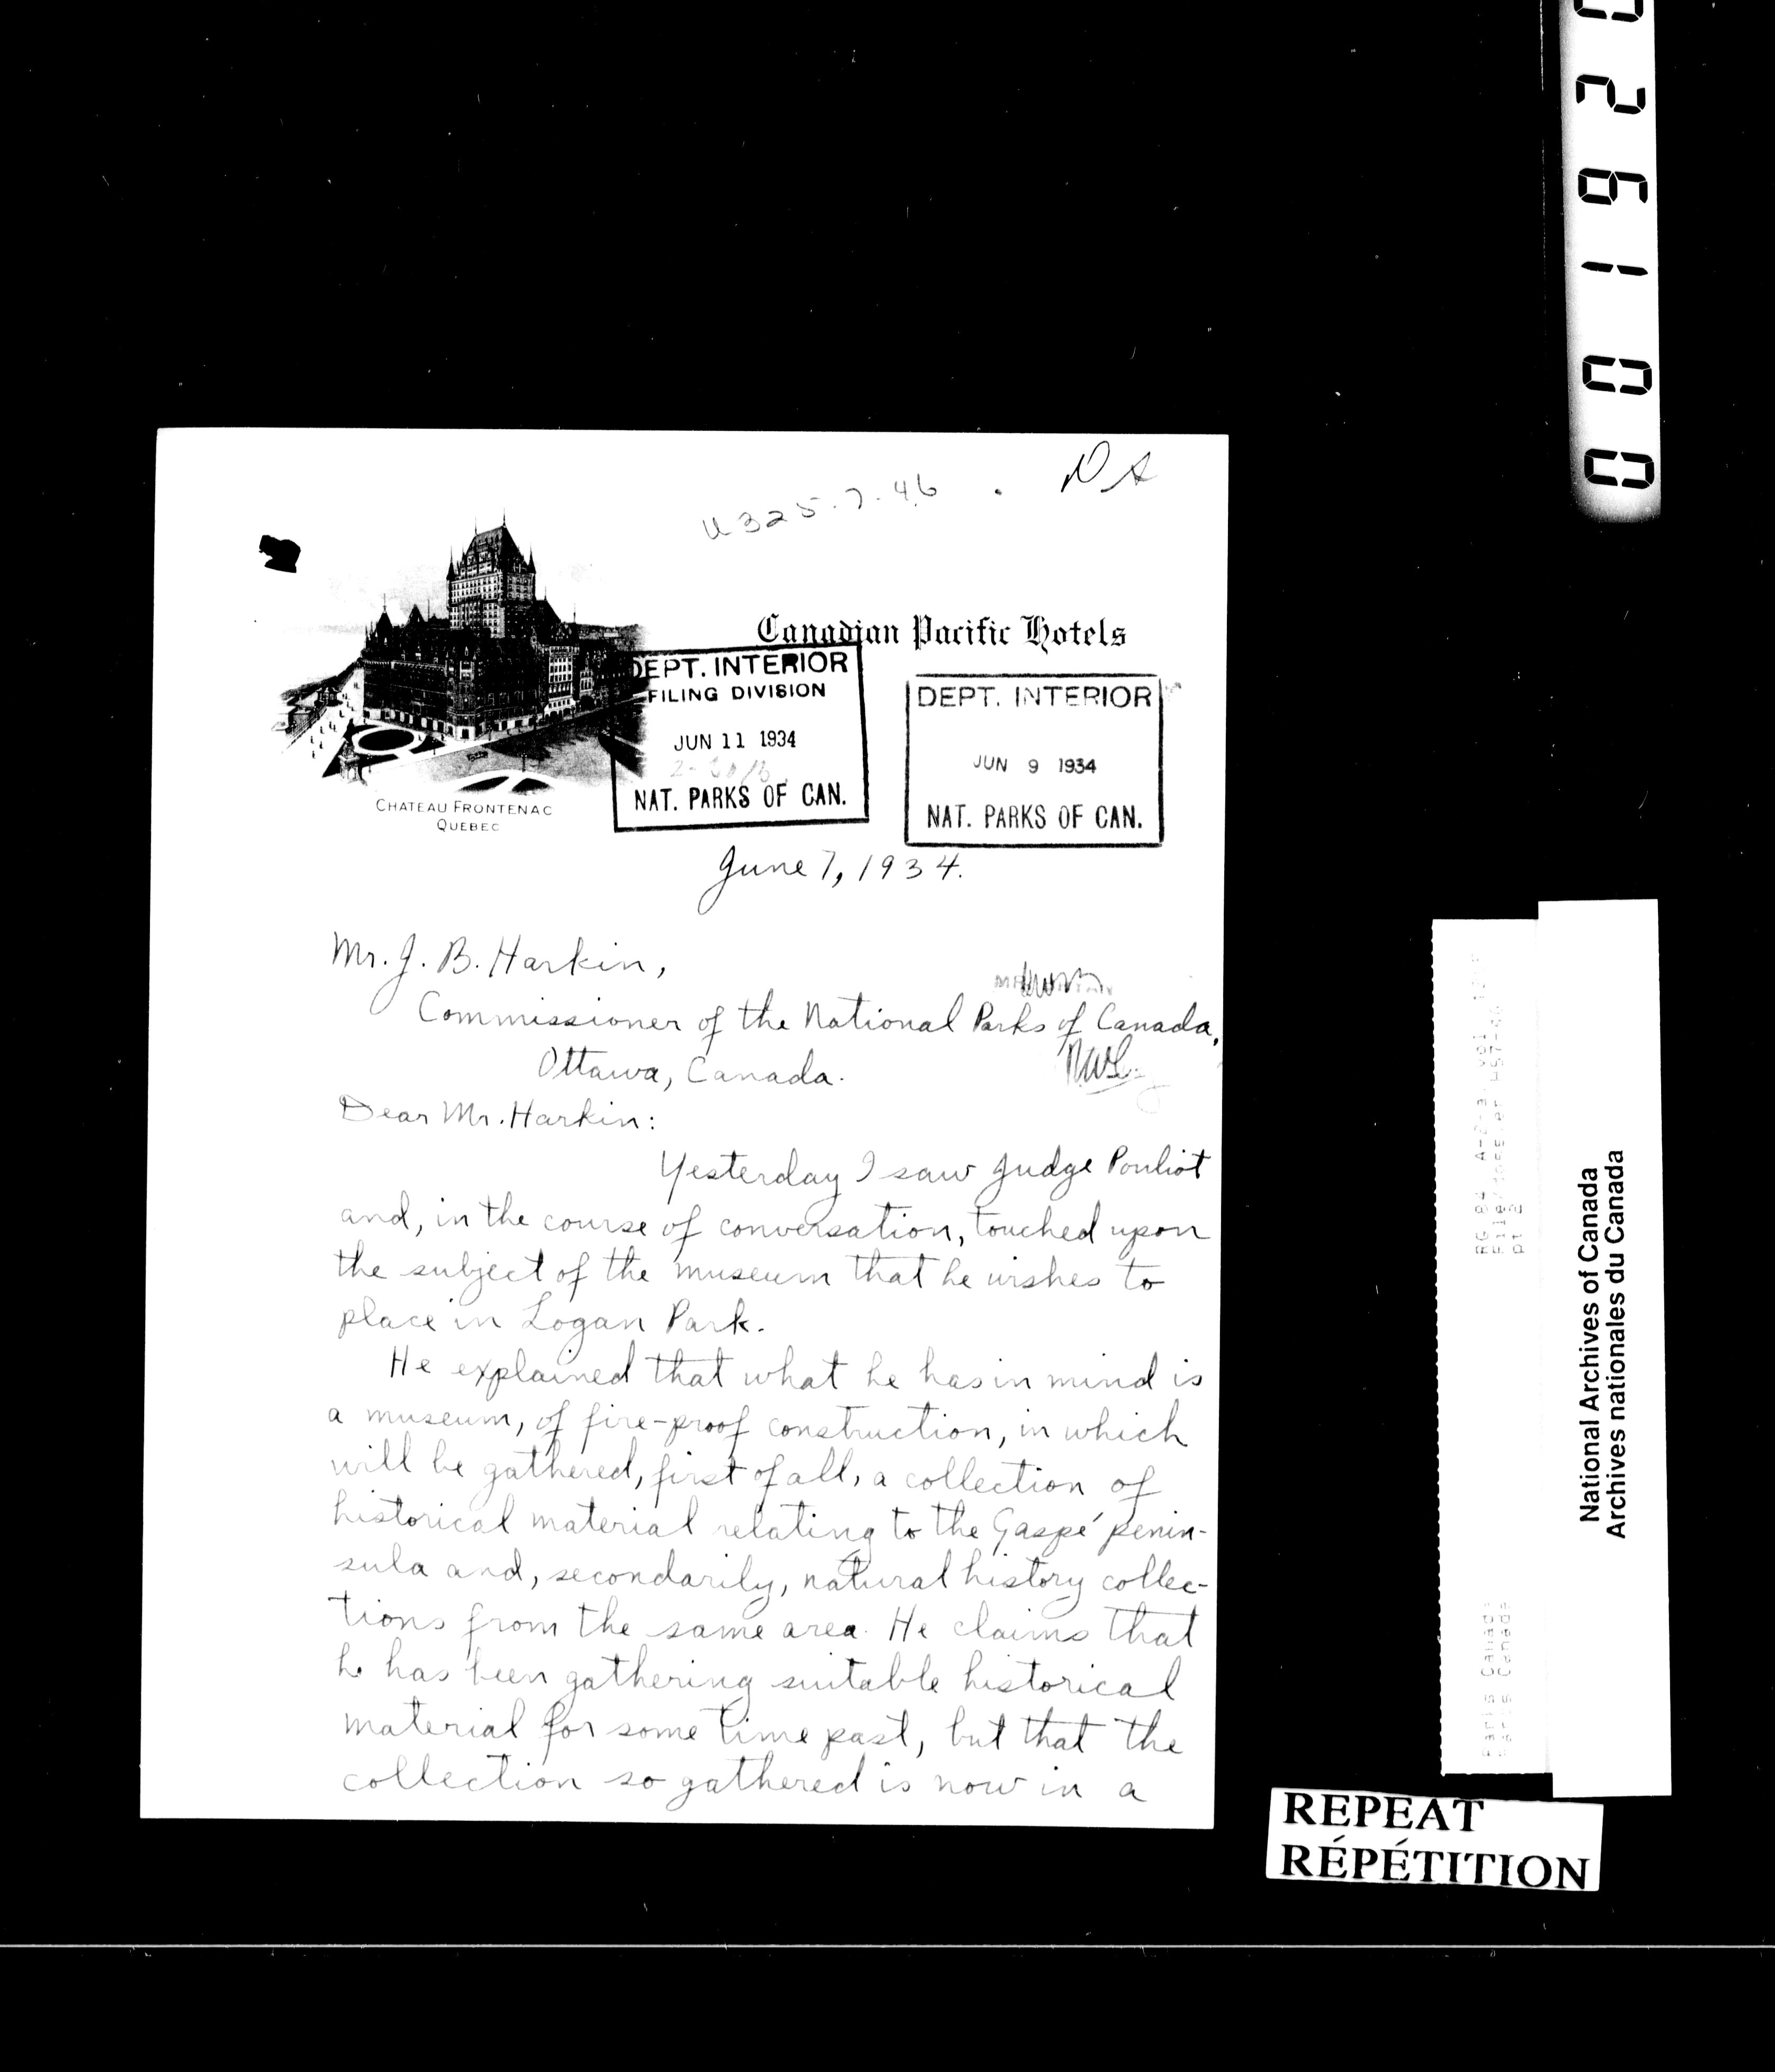 U325-7-46.
Canadian Pacific Hotels
DEPT. INTERIOR
FILING DIVISION
JUN 11 1934
NAT. PARKS OF CAN.
DEPT. INTERIOR
JUN 9 1934
NAT. PARKS OF CAN.
CHATEAU FRONTENAC
QUEBEC
June 7, 1934.
Mr. J. B. Harkin,
Commissioner of the National Parks of Canada,
Ottawa, Canada.
Dear Mr. Harkin:
Yesterday I saw Judge Pouliot
and, in the course of conversation, touched upon
the subject of the museum that he wishes to
place in Logan Park.
He explained that what he has in mind is
a museum, of fire-proof construction, in which
will be gathered, first of all, a collection of
historical material relating to the Gaspé penin-
sula and, secondarily, natural history collec-
tions from the same area. He claims that
he has been gathering suitable historical
material for some time past, but that the
collection so gathered is now in a
026100
National Archives of Canada
Archives nationales du Canada
REPEAT
RÉPÉTITION